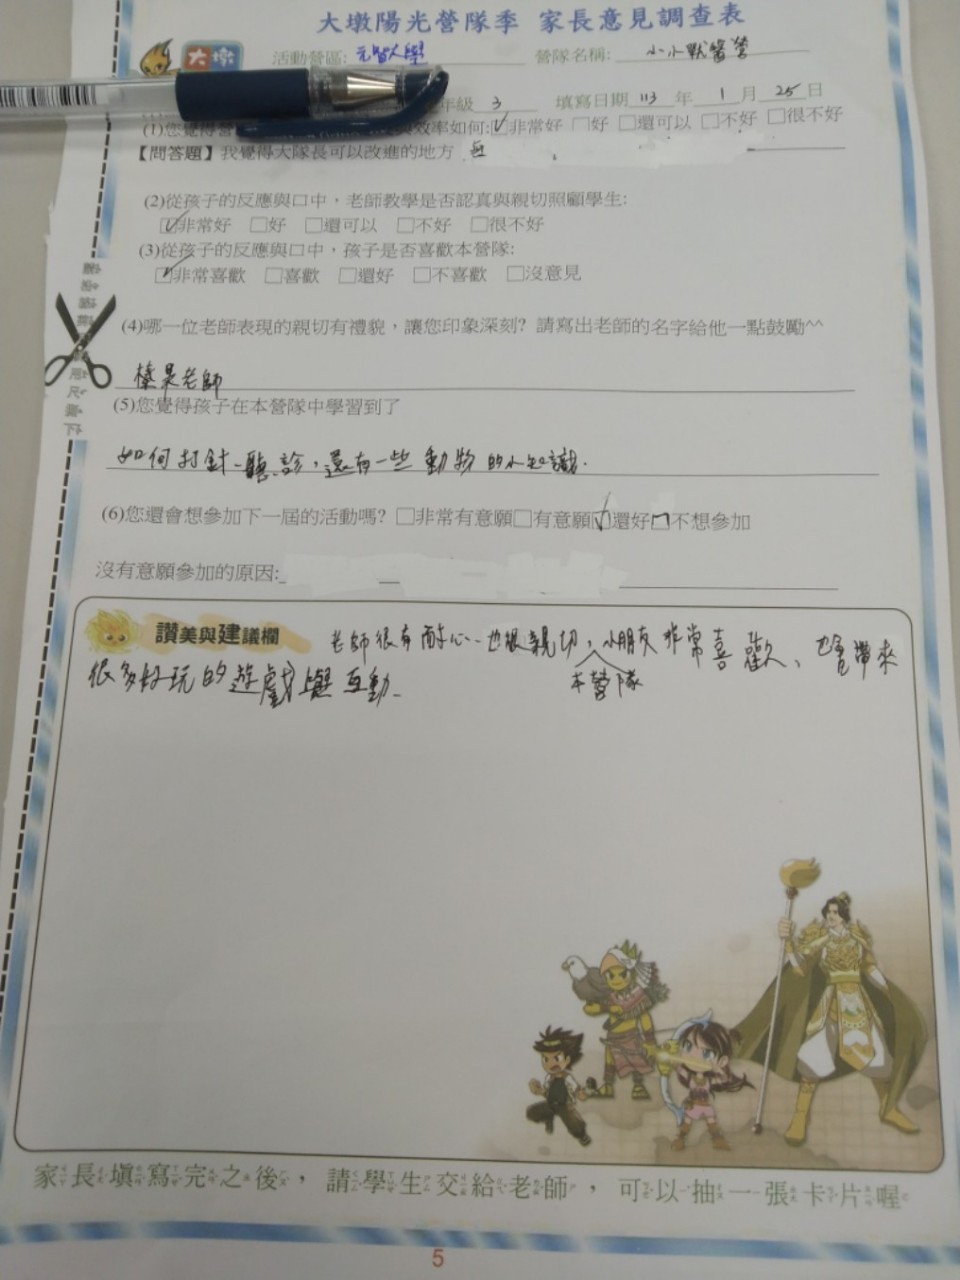 大墩陽光營隊季 家長意見調查表
大墩 活動營區: 元智大學 營隊名稱: 小小獸醫營
年級 3 填寫日期 113 年 1 月 25 日
(1)您覺得營 效率如何:☑非常好 □好 □還可以 □不好 □很不好
【問答題】我覺得大隊長可以改進的地方 無
(2)從孩子的反應與口中，老師教學是否認真與親切照顧學生:
☑非常好 □好 □還可以 □不好 □很不好
(3)從孩子的反應與口中，孩子是否喜歡本營隊:
☑非常喜歡 □喜歡 □還好 □不喜歡 □沒意見
(4)哪一位老師表現的親切有禮貌，讓您印象深刻? 請寫出老師的名字給他一點鼓勵^^
老師
(5)您覺得孩子在本營隊中學習到了
如何打針、聽診，還有一些動物的小知識.
(6)您還會想參加下一屆的活動嗎? □非常有意願□有意願☑還好□不想參加
沒有意願參加的原因:
讚美與建議欄 老師很有耐心、也很親切，小朋友非常喜歡、也會帶來
本營隊
很多好玩的遊戲與互動.
家長填寫完之後，請學生交給老師，可以抽一張卡片喔
5